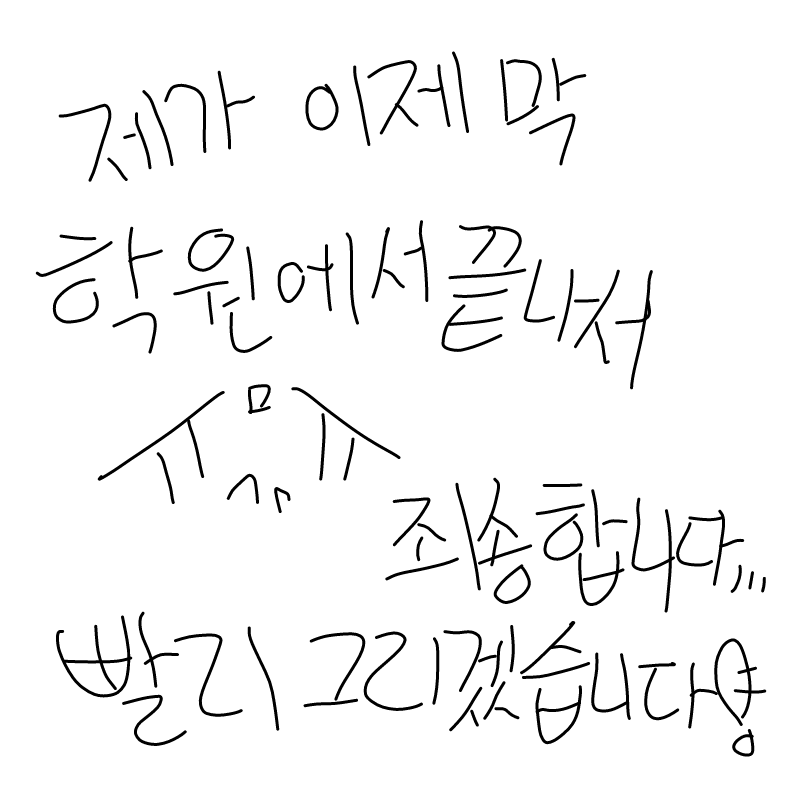 제가 이제 막
학원에서 끝나서
ㅠㅁㅠ
죄송합니다,,,
빨리 그리겠습니다앙